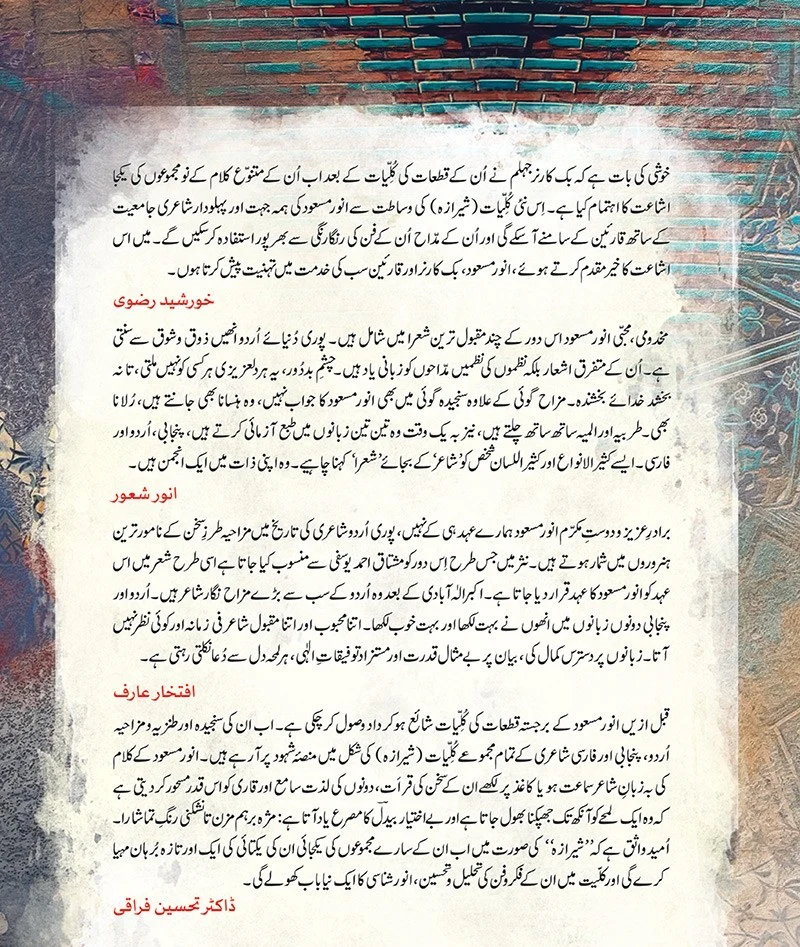 خوشی کی بات ہے کہ بک کارنر جہلم نے اُن کے قطعات کی کُلِّیات کے بعد اب اُن کے متنوّع کلام کے نو مجموعوں کی یکجا
اشاعت کا اہتمام کیا ہے۔ اِس نئی کُلِّیات (شیرازہ) کی وساطت سے انور مسعود کی ہمہ جہت اور پہلودار شاعری جامعیت
کے ساتھ قارئین کے سامنے آ سکے گی اور اُن کے مدّاح اُن کے فن کی رنگارنگی سے بھرپور استفادہ کر سکیں گے۔ میں اس
اشاعت کا خیر مقدم کرتے ہوئے، انور مسعود، بک کارنر اور قارئین سب کی خدمت میں تہنیت پیش کرتا ہوں۔
خورشید رضوی
مخدومی، محبّی انور مسعود اس دور کے چند مقبول ترین شعرا میں شامل ہیں۔ پوری دُنیائے اُردو انھیں ذوق و شوق سے سنتی
ہے۔ اُن کے متفرق اشعار بلکہ نظموں کی نظمیں مدّاحوں کو زبانی یاد ہیں۔ چشمِ بددُور، یہ ہر دلعزیزی ہر کسی کو نہیں ملتی، تا نہ
بخشد خدائے بخشندہ۔ مزاح گوئی کے علاوہ سنجیدہ گوئی میں بھی انور مسعود کا جواب نہیں، وہ ہنسانا بھی جانتے ہیں، رُلانا
بھی۔ طربیہ اور المیہ ساتھ ساتھ چلتے ہیں، نیز بہ یک وقت وہ تین تین زبانوں میں طبع آزمائی کرتے ہیں، پنجابی، اُردو اور
فارسی۔ ایسے کثیر الانواع اور کثیر اللسان شخص کو ’شاعر‘ کے بجائے ’شعرا‘ کہنا چاہیے۔ وہ اپنی ذات میں ایک انجمن ہیں۔
انور شعور
برادرِ عزیز و دوستِ مکرّم انور مسعود ہمارے عہد ہی کے نہیں، پوری اُردو شاعری کی تاریخ میں مزاحیہ طرزِ سخن کے نامور ترین
ہنروروں میں شمار ہوتے ہیں۔ نثر میں جس طرح اِس دور کو مشتاق احمد یوسفی سے منسوب کیا جاتا ہے اسی طرح شعر میں اس
عہد کو انور مسعود کا عہد قرار دیا جاتا ہے۔ اکبر الٰہ آبادی کے بعد وہ اُردو کے سب سے بڑے مزاح نگار شاعر ہیں۔ اُردو اور
پنجابی دونوں زبانوں میں انھوں نے بہت لکھا اور بہت خوب لکھا۔ اتنا محبوب اور اتنا مقبول شاعر فی زمانہ اور کوئی نظر نہیں
آتا۔ زبانوں پر دسترس کمال کی، بیان پر بے مثال قدرت اور مستزاد توفیقاتِ الٰہی، ہر لمحہ دل سے دُعا نکلتی رہتی ہے۔
افتخار عارف
قبل ازیں انور مسعود کے برجستہ قطعات کی کُلِّیات شائع ہو کر داد وصول کر چکی ہے۔ اب ان کی سنجیدہ اور طنزیہ و مزاحیہ
اُردو، پنجابی اور فارسی شاعری کے تمام مجموعے کُلِّیات (شیرازہ) کی شکل میں منصّۂ شہود پر آ رہے ہیں۔ انور مسعود کے کلام
کی بہ زبانِ شاعر سماعت ہو یا کاغذ پر لکھے ان کے سخن کی قرأت، دونوں کی لذت سامع اور قاری کو اس قدر مسحور کر دیتی ہے
کہ وہ ایک لمحے کو آنکھ تک جھپکنا بھول جاتا ہے اور بے اختیار بیدلؔ کا مصرع یاد آتا ہے: مژہ برہم مزن تا نشکنی رنگِ تماشا را۔
اُمید واثق ہے کہ ’’شیرازہ‘‘ کی صورت میں اب ان کے سارے مجموعوں کی یکجائی ان کی یکتائی کی ایک اور تازہ بُرہان مہیا
کرے گی اور کلّیت میں ان کے فکر و فن کی تحلیل و تحسین، انور شناسی کا ایک نیا باب کھولے گی۔
ڈاکٹر تحسین فراقی